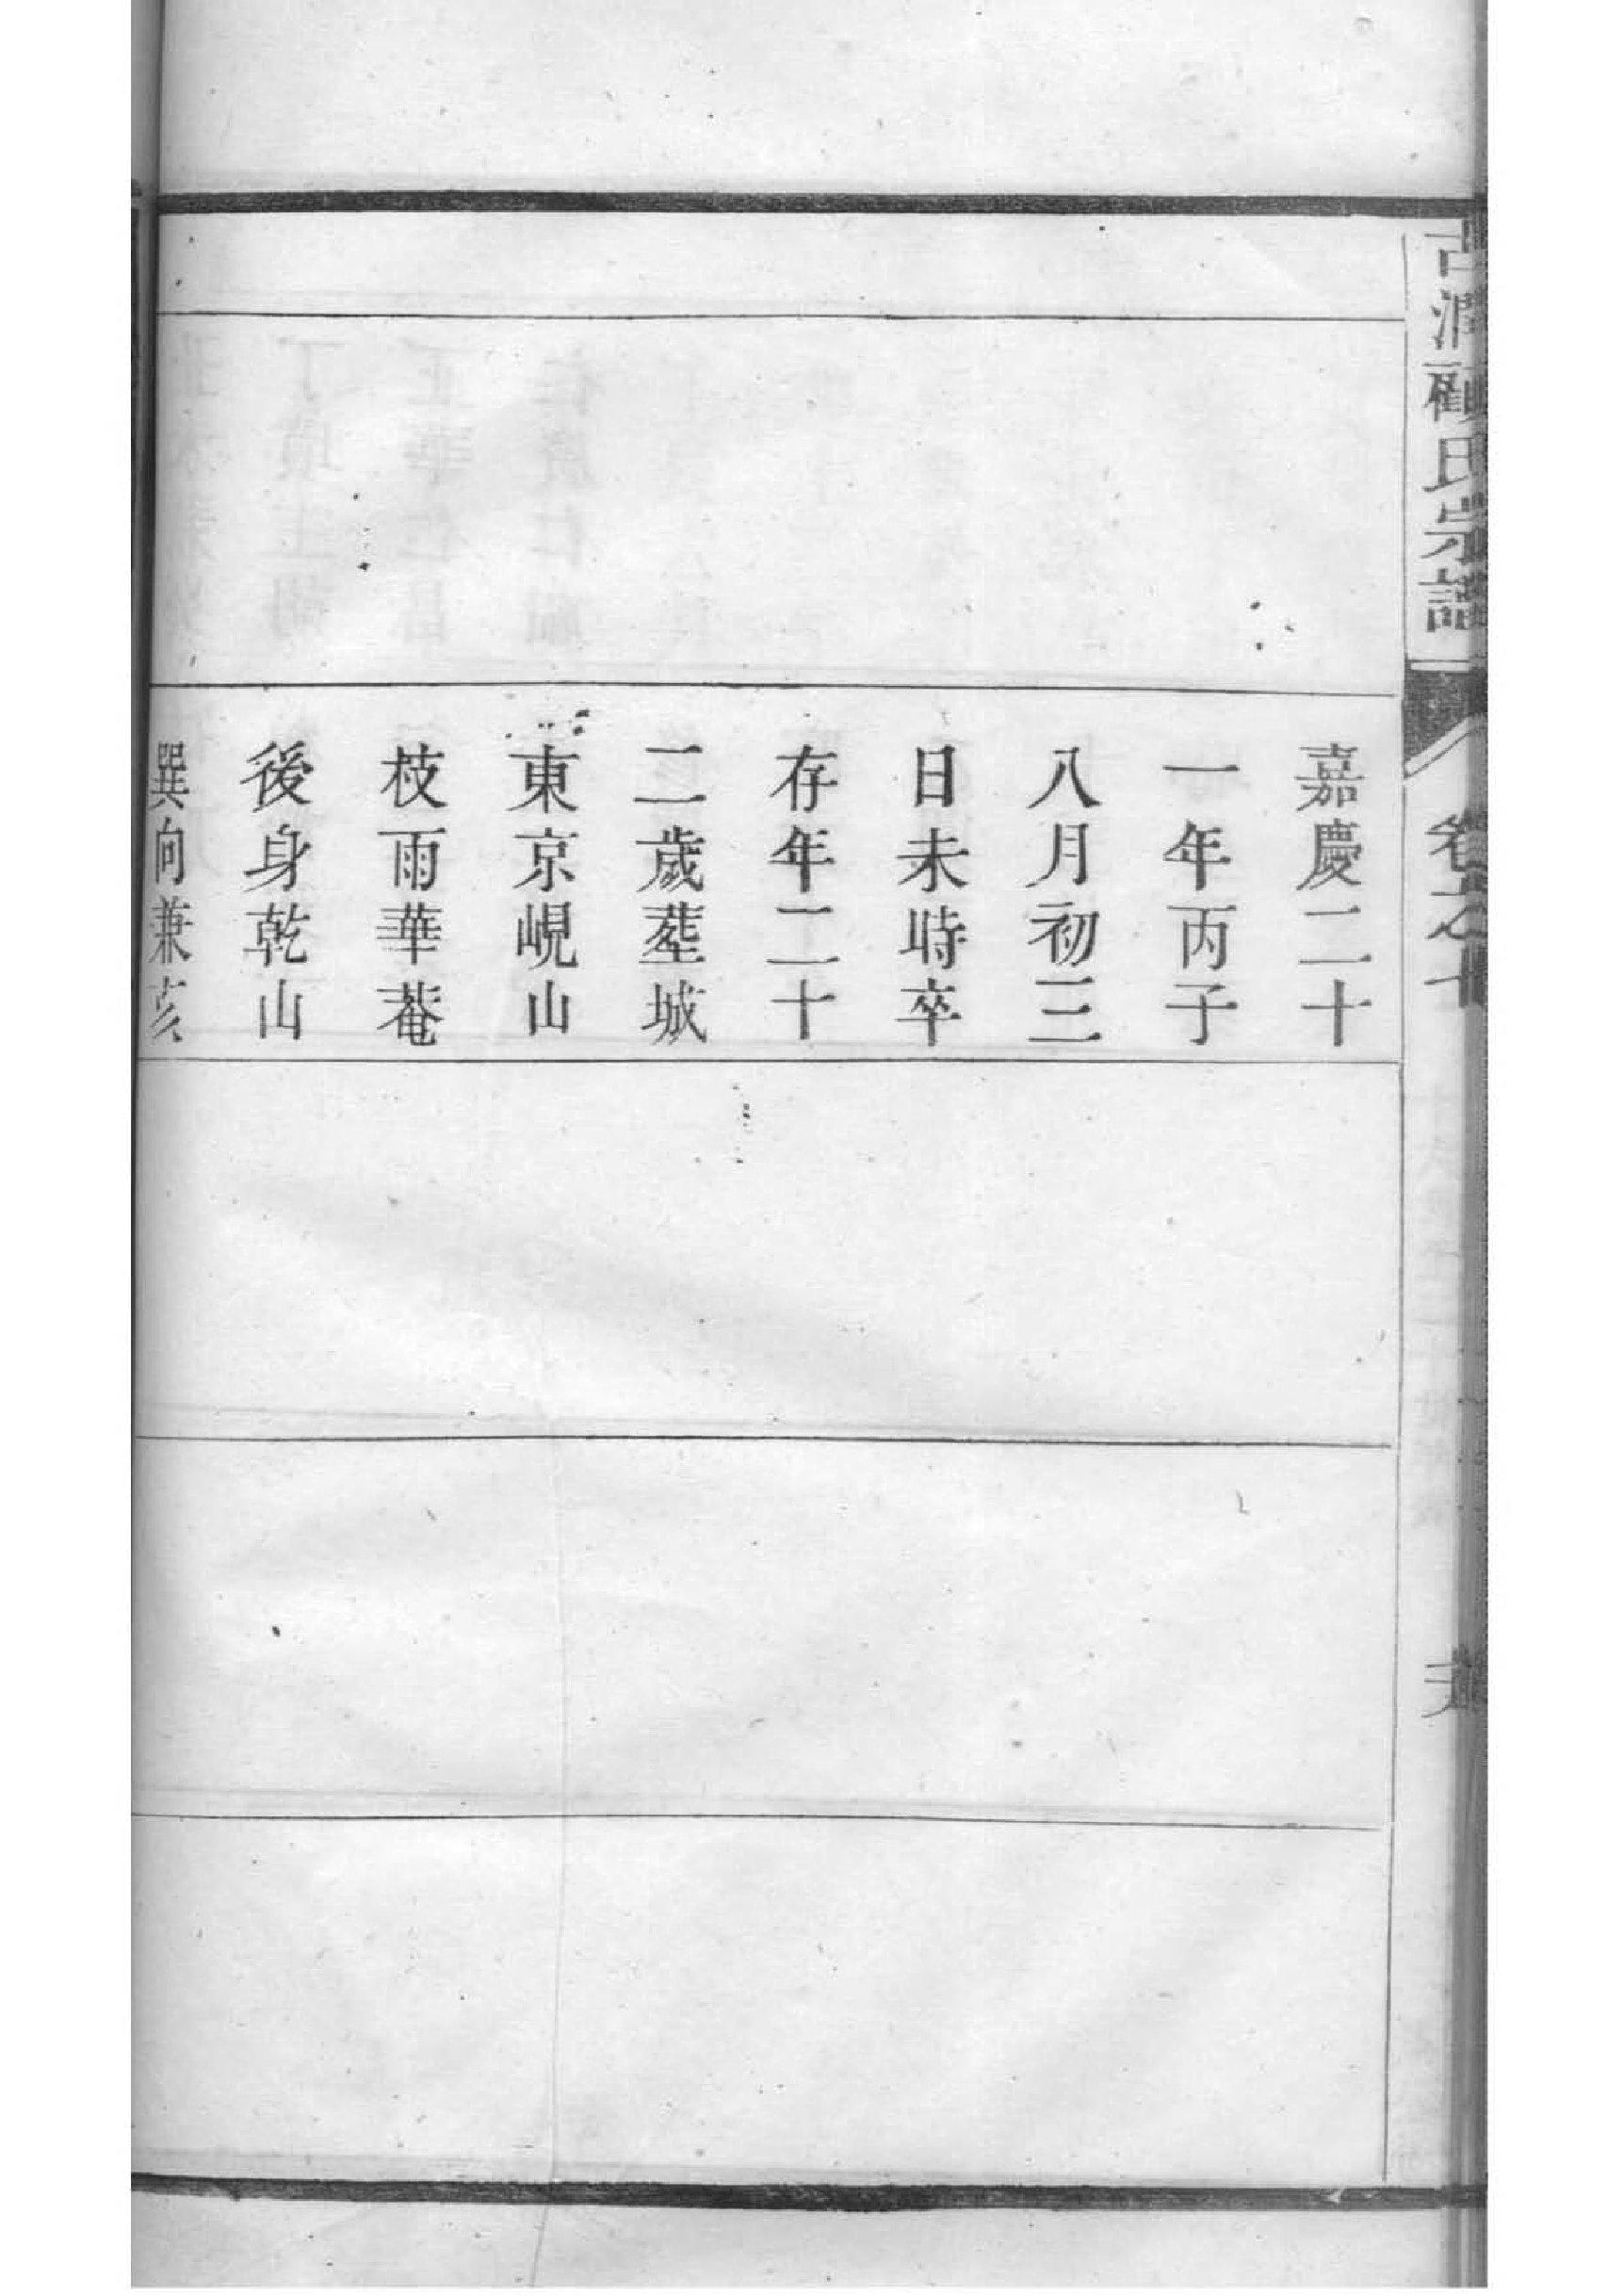 古潤顧氏宗譜 卷之十
嘉慶二十
一年丙子
八月初三
日未時卒
存年二十
二歲塟城
東京峴山
枝雨華菴
後身乾山
巽向兼亥